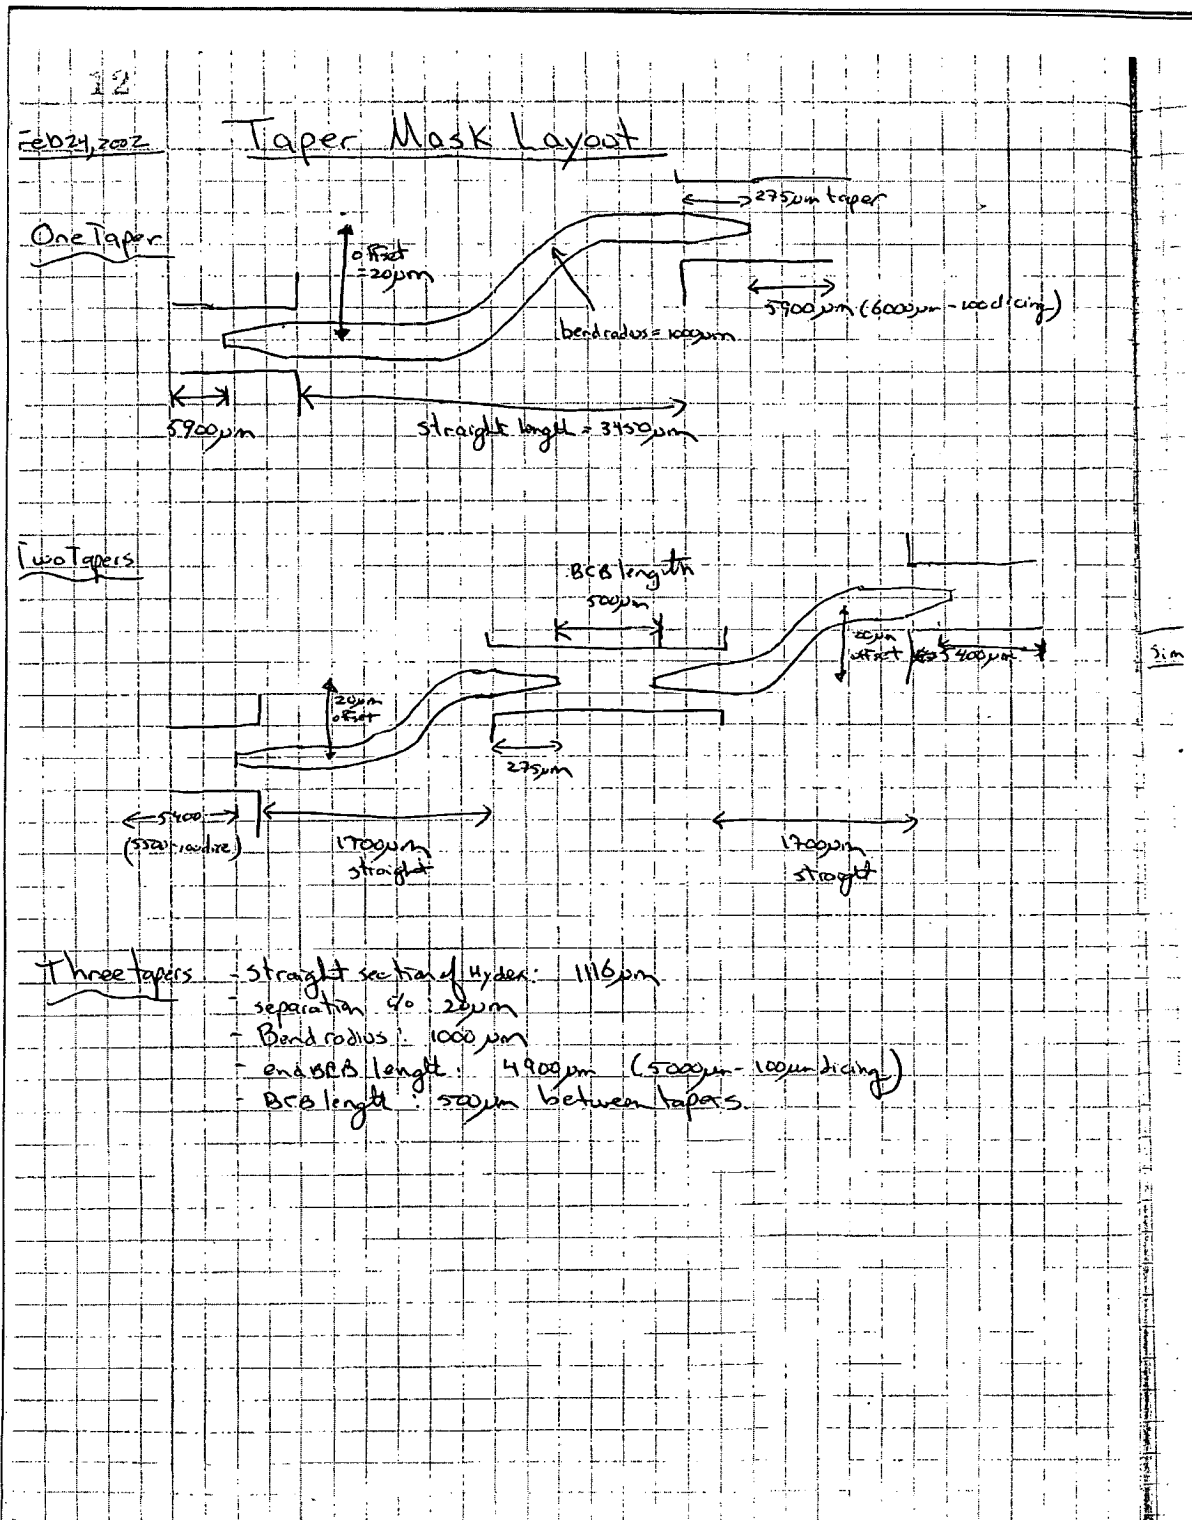 12
Feb 24, 2002
Taper Mask Layout
275µm taper
One Taper
offset
=20µm
5900µm (6000µm - 100 dicing)
bend radius = 1000µm
5900µm
straight length = 3450µm
Two Tapers
BCB length
500µm
20µm
offset
5400µm
Sim
20µm
offset
275µm
5400
(5500-100dice)
1700µm
straight
1700µm
straight
Three tapers - straight section of Hydex: 1116µm
- separation 20µm
- Bend radius: 1000µm
- end BCB length: 4900µm (5000µm - 100µm dicing)
- BCB length: 500µm between tapers.